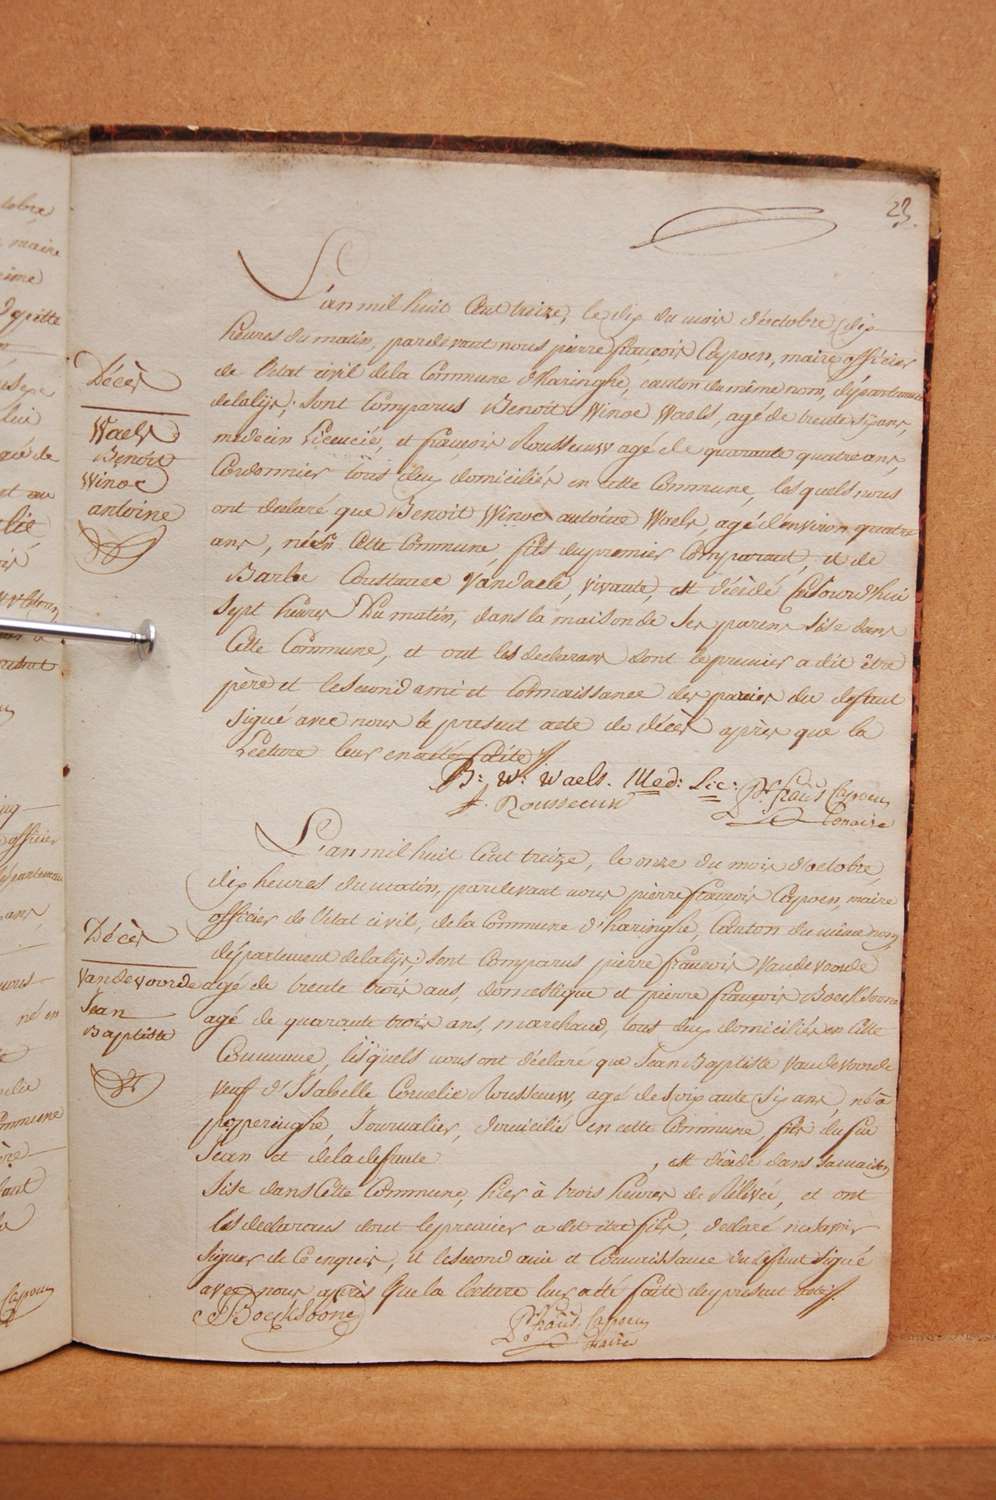 23.
L'an mil huit Cent treize, le dix du mois d'octobre, dix
heures du matin, pardevant nous pierre françois Capoen, maire officier
de l'état civil de la Commune d'haringhe, canton du même nom, département
delalijs; sont Comparus Benoit Winoc Waels, agé de trente six ans,
medecin Licencié, et françois Rousseeuw agé de quarante quatre ans,
Cordonnier tous deux domiciliés en cette Commune, lesquels nous
ont declaré que Benoit Winoc antoine Waels, agé d'environ quatre
ans, né en Cette Commune, fils du premier Comparant, et de
Barbe Constance Vandaele, vivante, est décédé cejourd'hui
sept heures du matin, dans la maison de ses parens sise dans
Cette Commune, et ont les declarans dont le premier a dit être
père et le second ami et Connaissance des parties du defunt
signé avec nous le present acte de décès après que la
Lecture leur en a été faite
B: W: Waels. Med: Lic:
f. Rousseeuw
P. fraûs Capoen
maire
Décès
Waels
Benoit
Winoc
antoine
L'an mil huit Cent treize, le onze du mois d'octobre,
dix heures du matin, pardevant nous pierre françois Capoen, maire
officier de l'état civil, de la Commune d'haringhe, Canton du même nom,
département delalijs, sont Comparus pierre françois Vandevoorde
agé de trente trois ans, domestique et pierre françois Boecksoone
agé de quarante trois ans, marchand, tous deux domiciliés en Cette
Commune, lesquels nous ont déclaré que Jean Baptiste Vandevoorde
veuf d'Isabelle Cornelie Rousseeuw, agé de soixante six ans, né à
poperinghe, Journalier, domicilié en cette Commune, fils du feu
Jean et de la defunte , est décédé dans sa maison
sise dans Cette Commune, hier à trois heures de Relevée, et ont
les declarans dont le premier a dit être fils, declaré ne savoir
signer de Ce enquis, et le second ami et Connaissance du defunt signé
avec nous après que la lecture leur a été faite du présent acte
Boecksoone
P. fraûs Capoen
maire
Décès
Vandevoorde
Jean
Baptiste